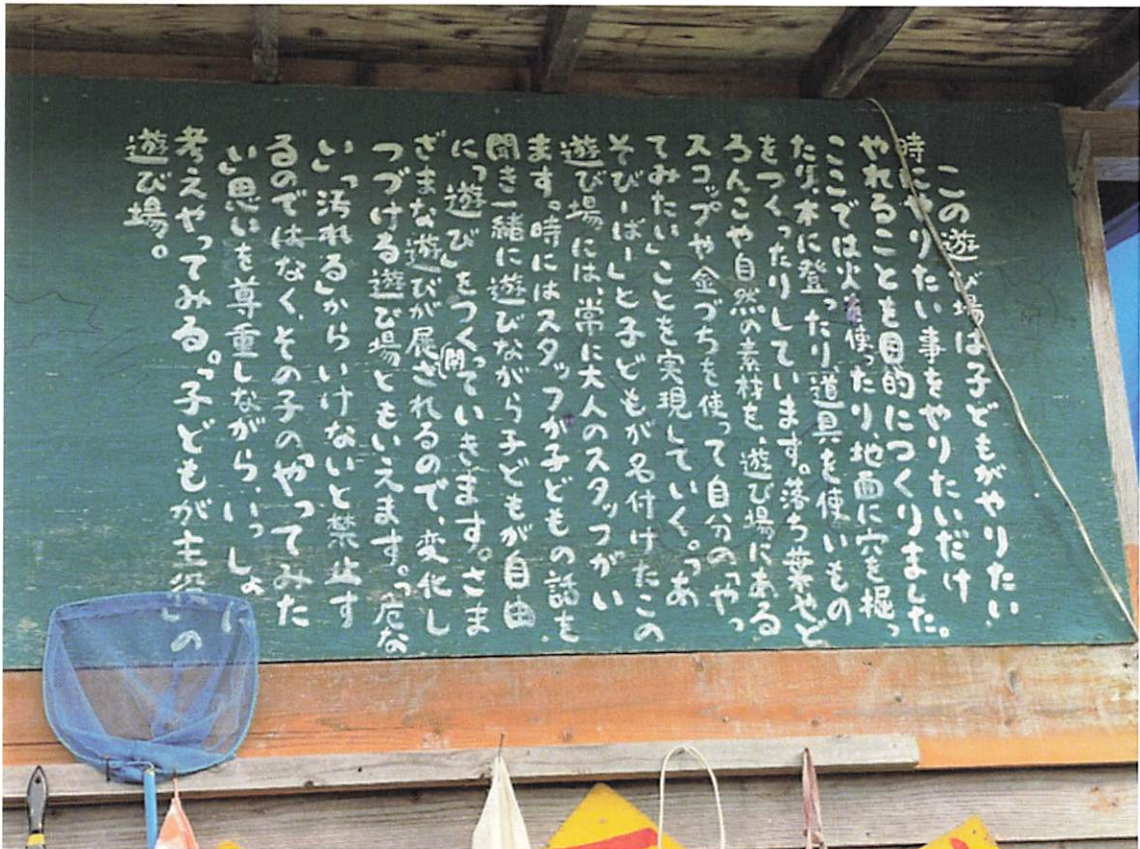 この遊び場は子どもがやりたい
時にやりたい事をやりたいだけ
やれることを目的につくりました。
ここでは火を使ったり、地面に穴を掘っ
たり、木に登ったり、道具を使いもの
をつくったりしています。落ち葉やど
ろんこや自然の素材を、遊び場にある
スコップや金づちを使って自分の「やっ
てみたい」ことを実現していく。「あ
そびーばー」と子どもが名付けたこの
遊び場には、常に大人のスタッフがい
ます。時にはスタッフが子どもの話を
聞き一緒に遊びながら子どもが自由
に「遊び」をつくっていきます。さま
ざまな遊びが展開されるので、変化し
つづける遊び場ともいえます。「危な
い」「汚れる」からいけないと禁止す
るのではなく、その子の「やってみた
い」思いを尊重しながら、いっしょに
考えやってみる。「子どもが主役」の
遊び場。